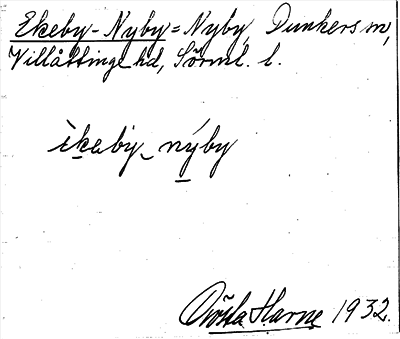 Ekeby-Nyby = Nyby, Dunkers sn,
Villåttinge hd, Sörml. l.
ìkebẏ - nýby
Gösta Harne 1932.